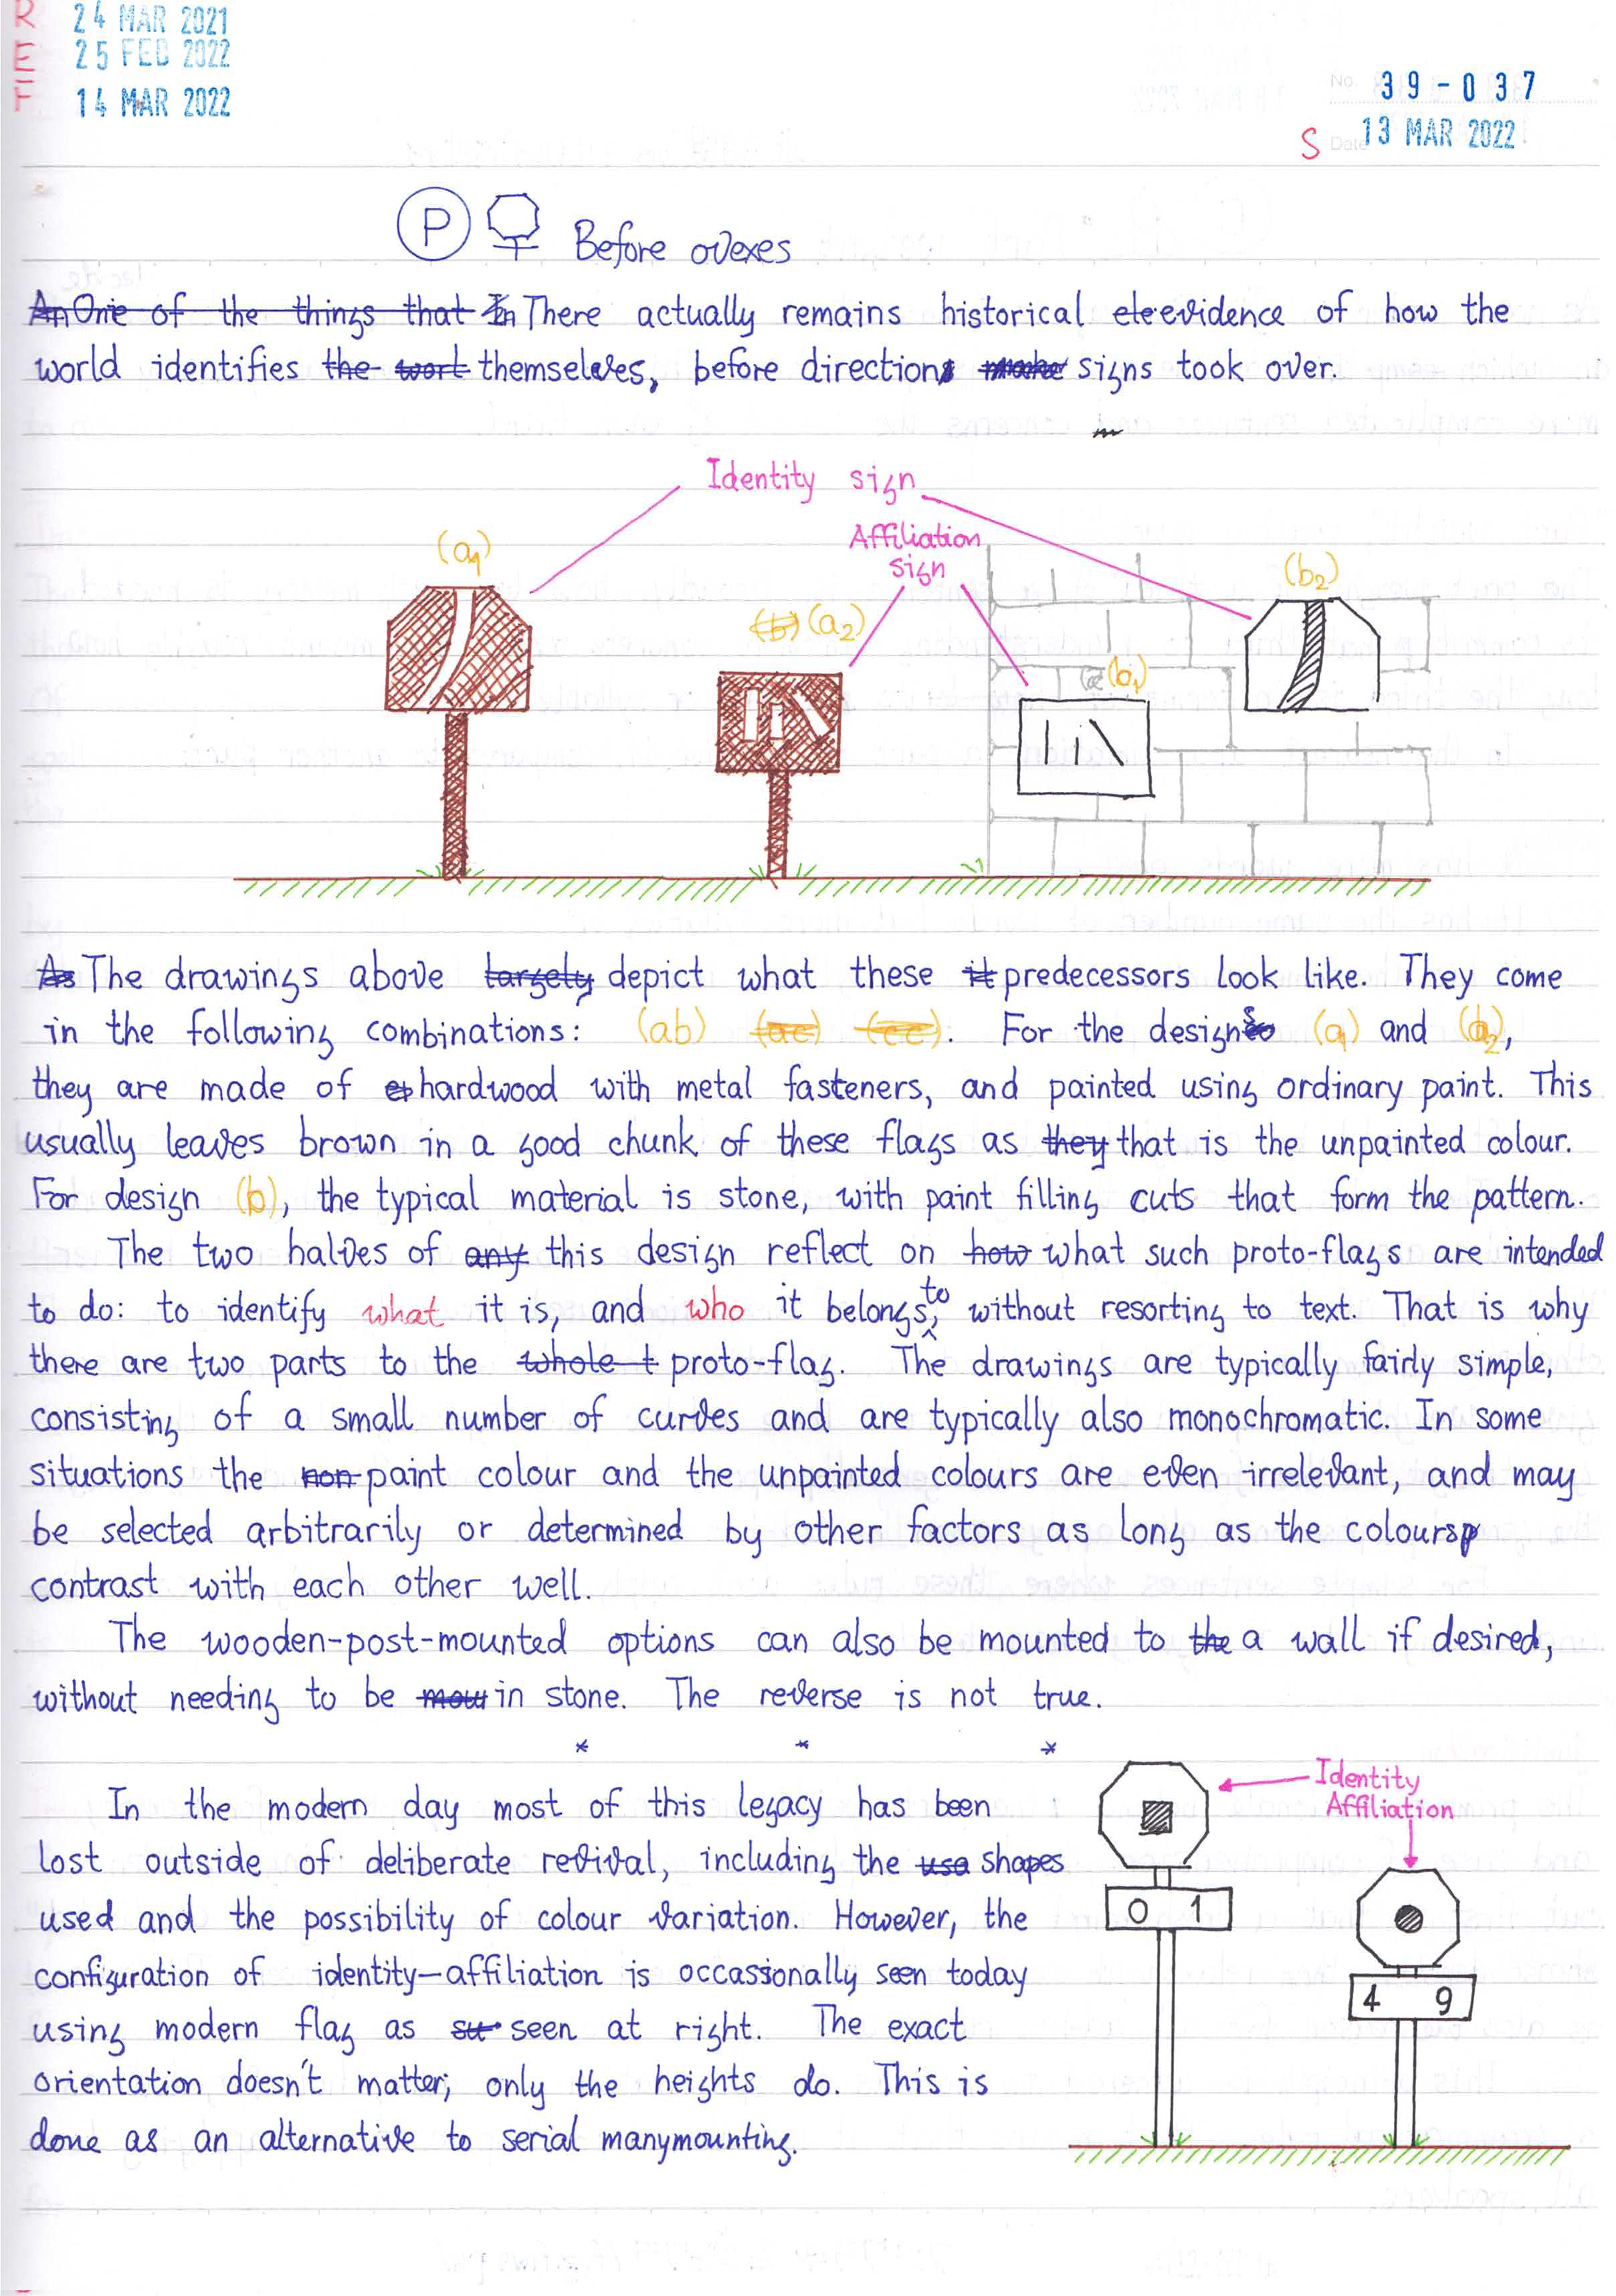 R
E
F
24 MAR 2021
25 FEB 2022
14 MAR 2022
No. 39-037
S Date 13 MAR 2022
P Before ovexes
An One of the things that In There actually remains historical ele evidence of how the
world identifies the wort themselves, before directions make signs took over.
Identity sign
Affiliation
sign
(a1)
(b) (a2)
(b1)
(b2)
As The drawings above largely depict what these it predecessors look like. They come
in the following combinations: (ab) (ac) (cc). For the designs (a1) and (a2),
they are made of hardwood with metal fasteners, and painted using ordinary paint. This
usually leaves brown in a good chunk of these flags as they that is the unpainted colour.
For design (b), the typical material is stone, with paint filling cuts that form the pattern.
The two halves of any this design reflect on how what such proto-flags are intended
to do: to identify what it is, and who it belongs to, without resorting to text. That is why
there are two parts to the whole t proto-flag. The drawings are typically fairly simple,
consisting of a small number of curves and are typically also monochromatic. In some
situations the non paint colour and the unpainted colours are even irrelevant, and may
be selected arbitrarily or determined by other factors as long as the colours
contrast with each other well.
The wooden-post-mounted options can also be mounted to the a wall if desired,
without needing to be mou in stone. The reverse is not true.
* * *
In the modern day most of this legacy has been
lost outside of deliberate revival, including the use shapes
used and the possibility of colour variation. However, the
configuration of identity-affiliation is occassionally seen today
using modern flag as su seen at right. The exact
orientation doesn't matter; only the heights do. This is
done as an alternative to serial manymounting.
Identity
Affiliation
0 1
4 9